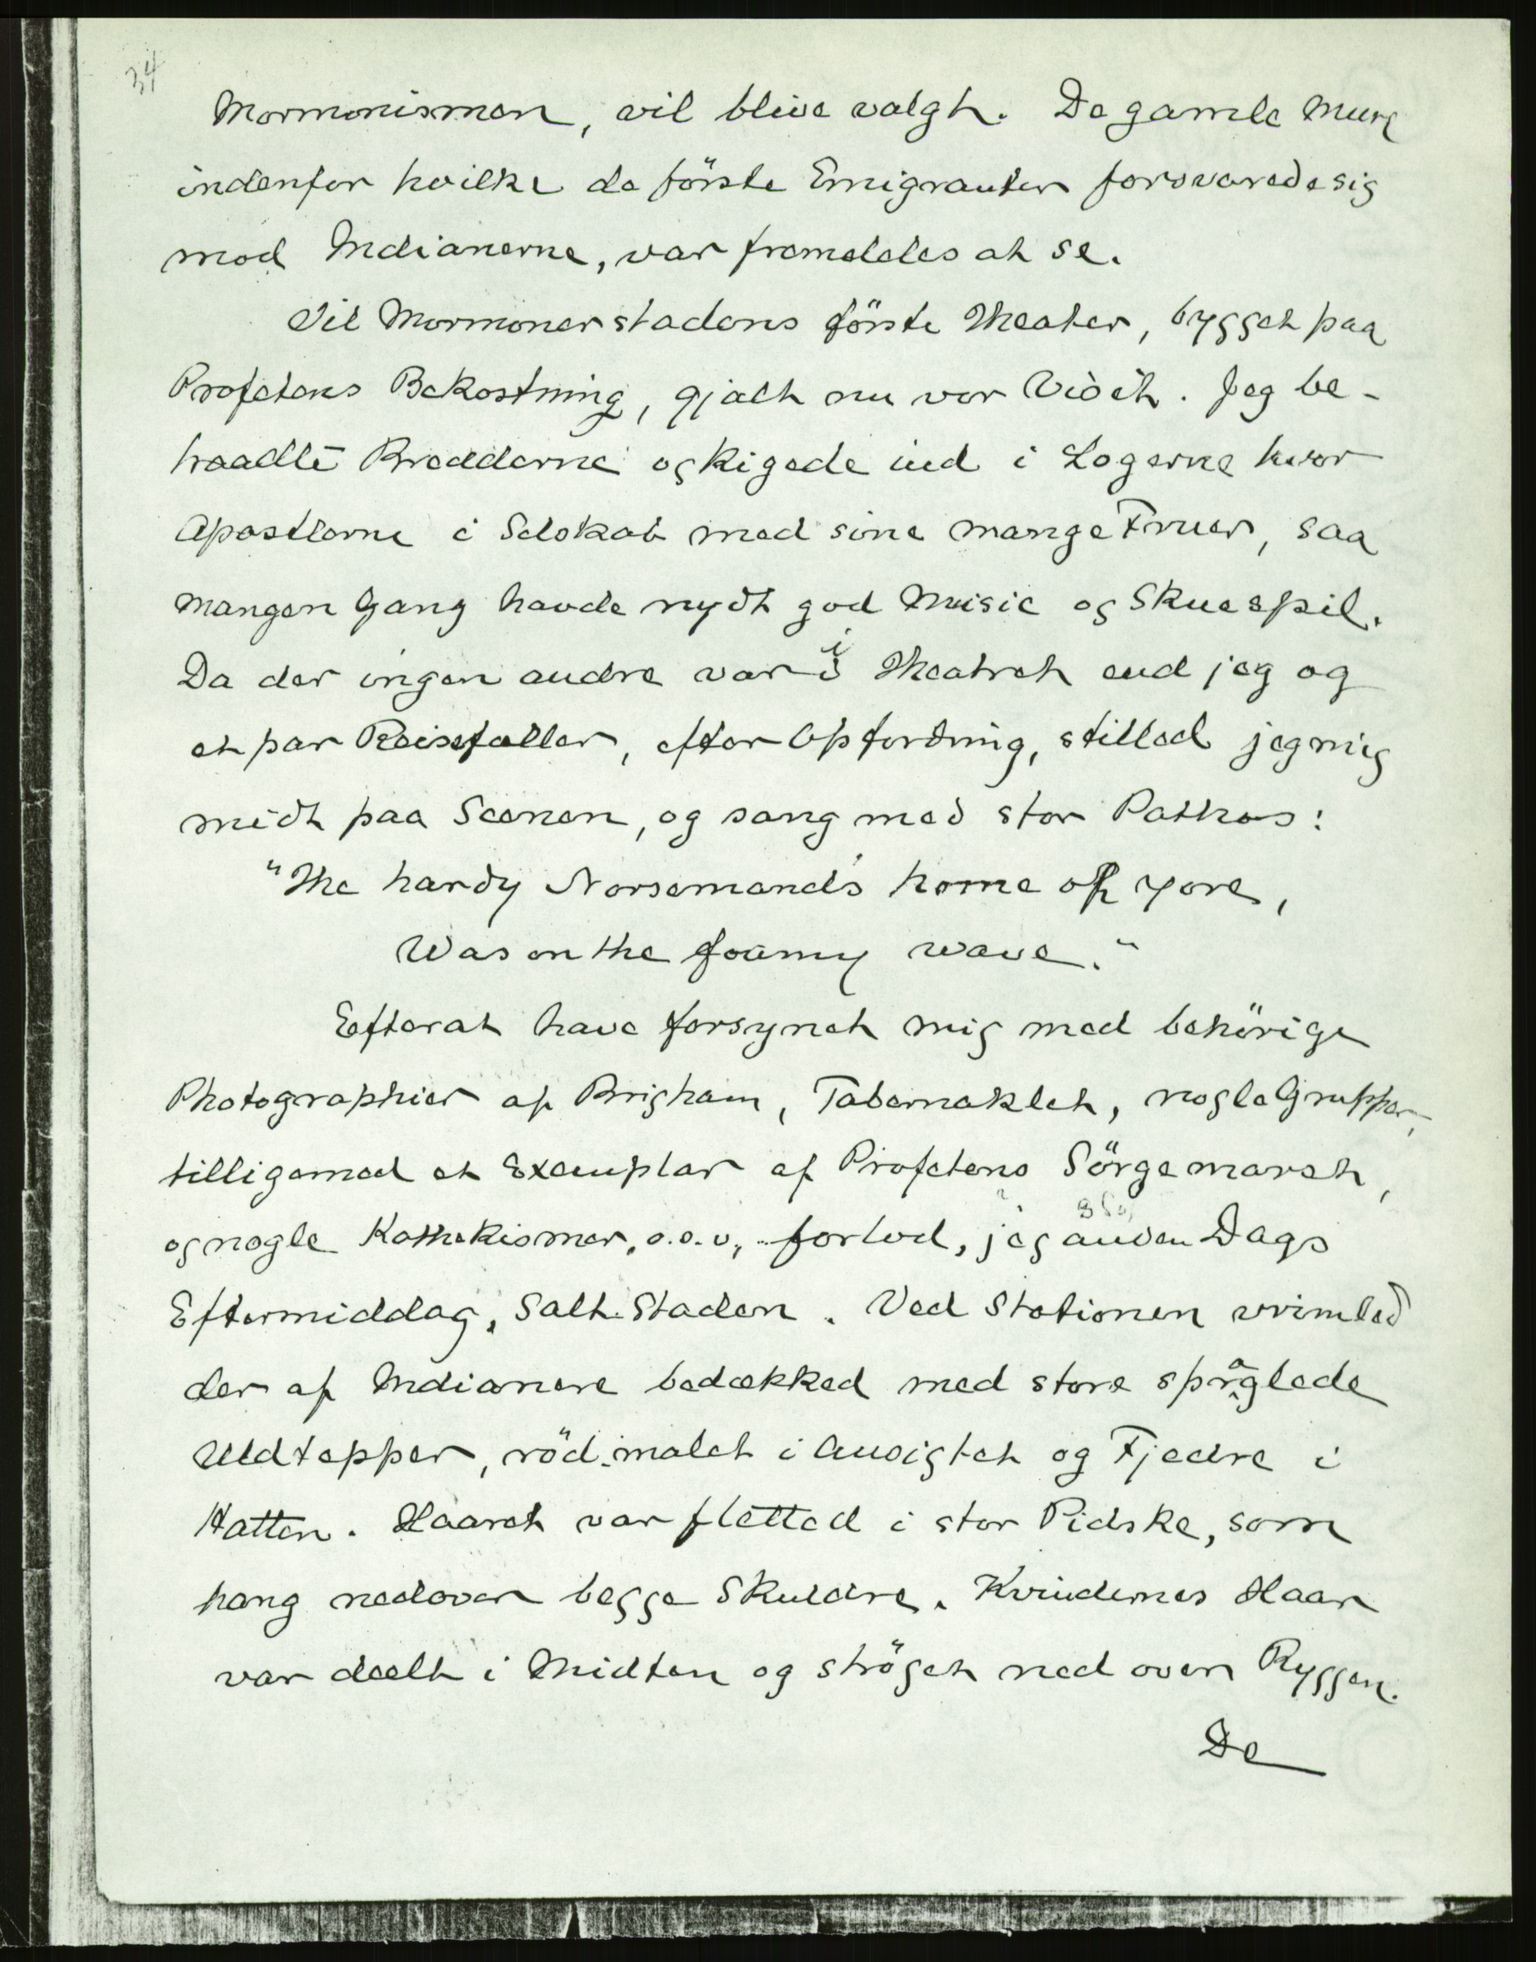 34
Mormonismen, vil blive valgt. De gamle Mure
indenfor hvilke de förste Emigranter forsvarede sig
mod Indianerne, var fremdeles at se.
Til Mormonerstadens förste Theater, bygget paa
Profetens Bekostning, gjalt nu vor Visit. Jeg be-
traadte Bredderne og kigede ind i Logerne hvor
Apostlerne i Selskab med sine mange Fruer, saa
mangen Gang havde nydt god Music og Skuespil.
Da der ingen andre var i Theatret end jeg og
et par Reisefæller, efter Opfordring, stilled jeg mig
midt paa Scenen, og sang med stor Pathos:
"The hardy Norsemand's home of yore,
Was on the foamy wave."
Efterat have forsynet mig med behörige
Photographier af Brigham, Tabernaklet, nogle Grupper,
tilligemed et Exemplar af Profetens Sörgemarsh,
og nogle Kathekismer, o.s.v, forlod, jeg anden Dags
Eftermiddag, Salt Staden. Ved Stationen vrimled
der af Indianere bedækked med store spraglede
Uldtepper, röd malet i Ansigtet og Fjedre i
Hatten. Haaret var flettet i stor Pidske, som
hang nedover begge Skuldre. Kvindernes Haar
var deelt i Midten og ströget ned over Ryggen.
De